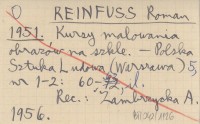 O REINFUSS Roman
1951. Kursy malowania
obrazów na szkle. — Polska
Sztuka Ludowa (Warszawa) 5,
nr 1-2: 60-
Rec.: Zambrzycka A.
1956.